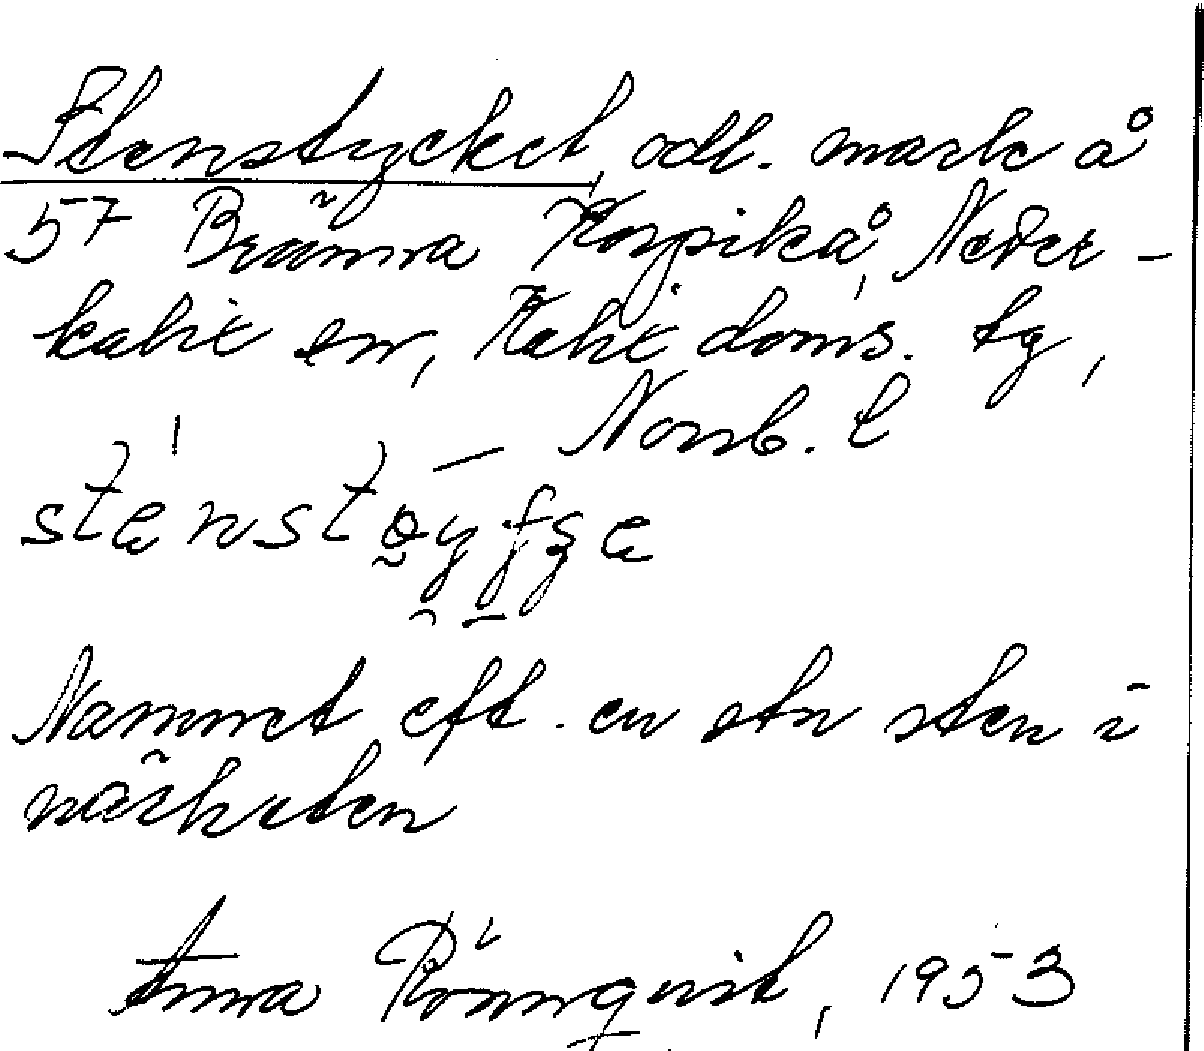 Stenstycket, odl. mark å
57 Brännna Korpikå, Neder-
kalix sn, Kalix doms. tg,
Norrb. l
Namnet eft. en stor sten i
närheten
Anna Rönnqvist, 1953